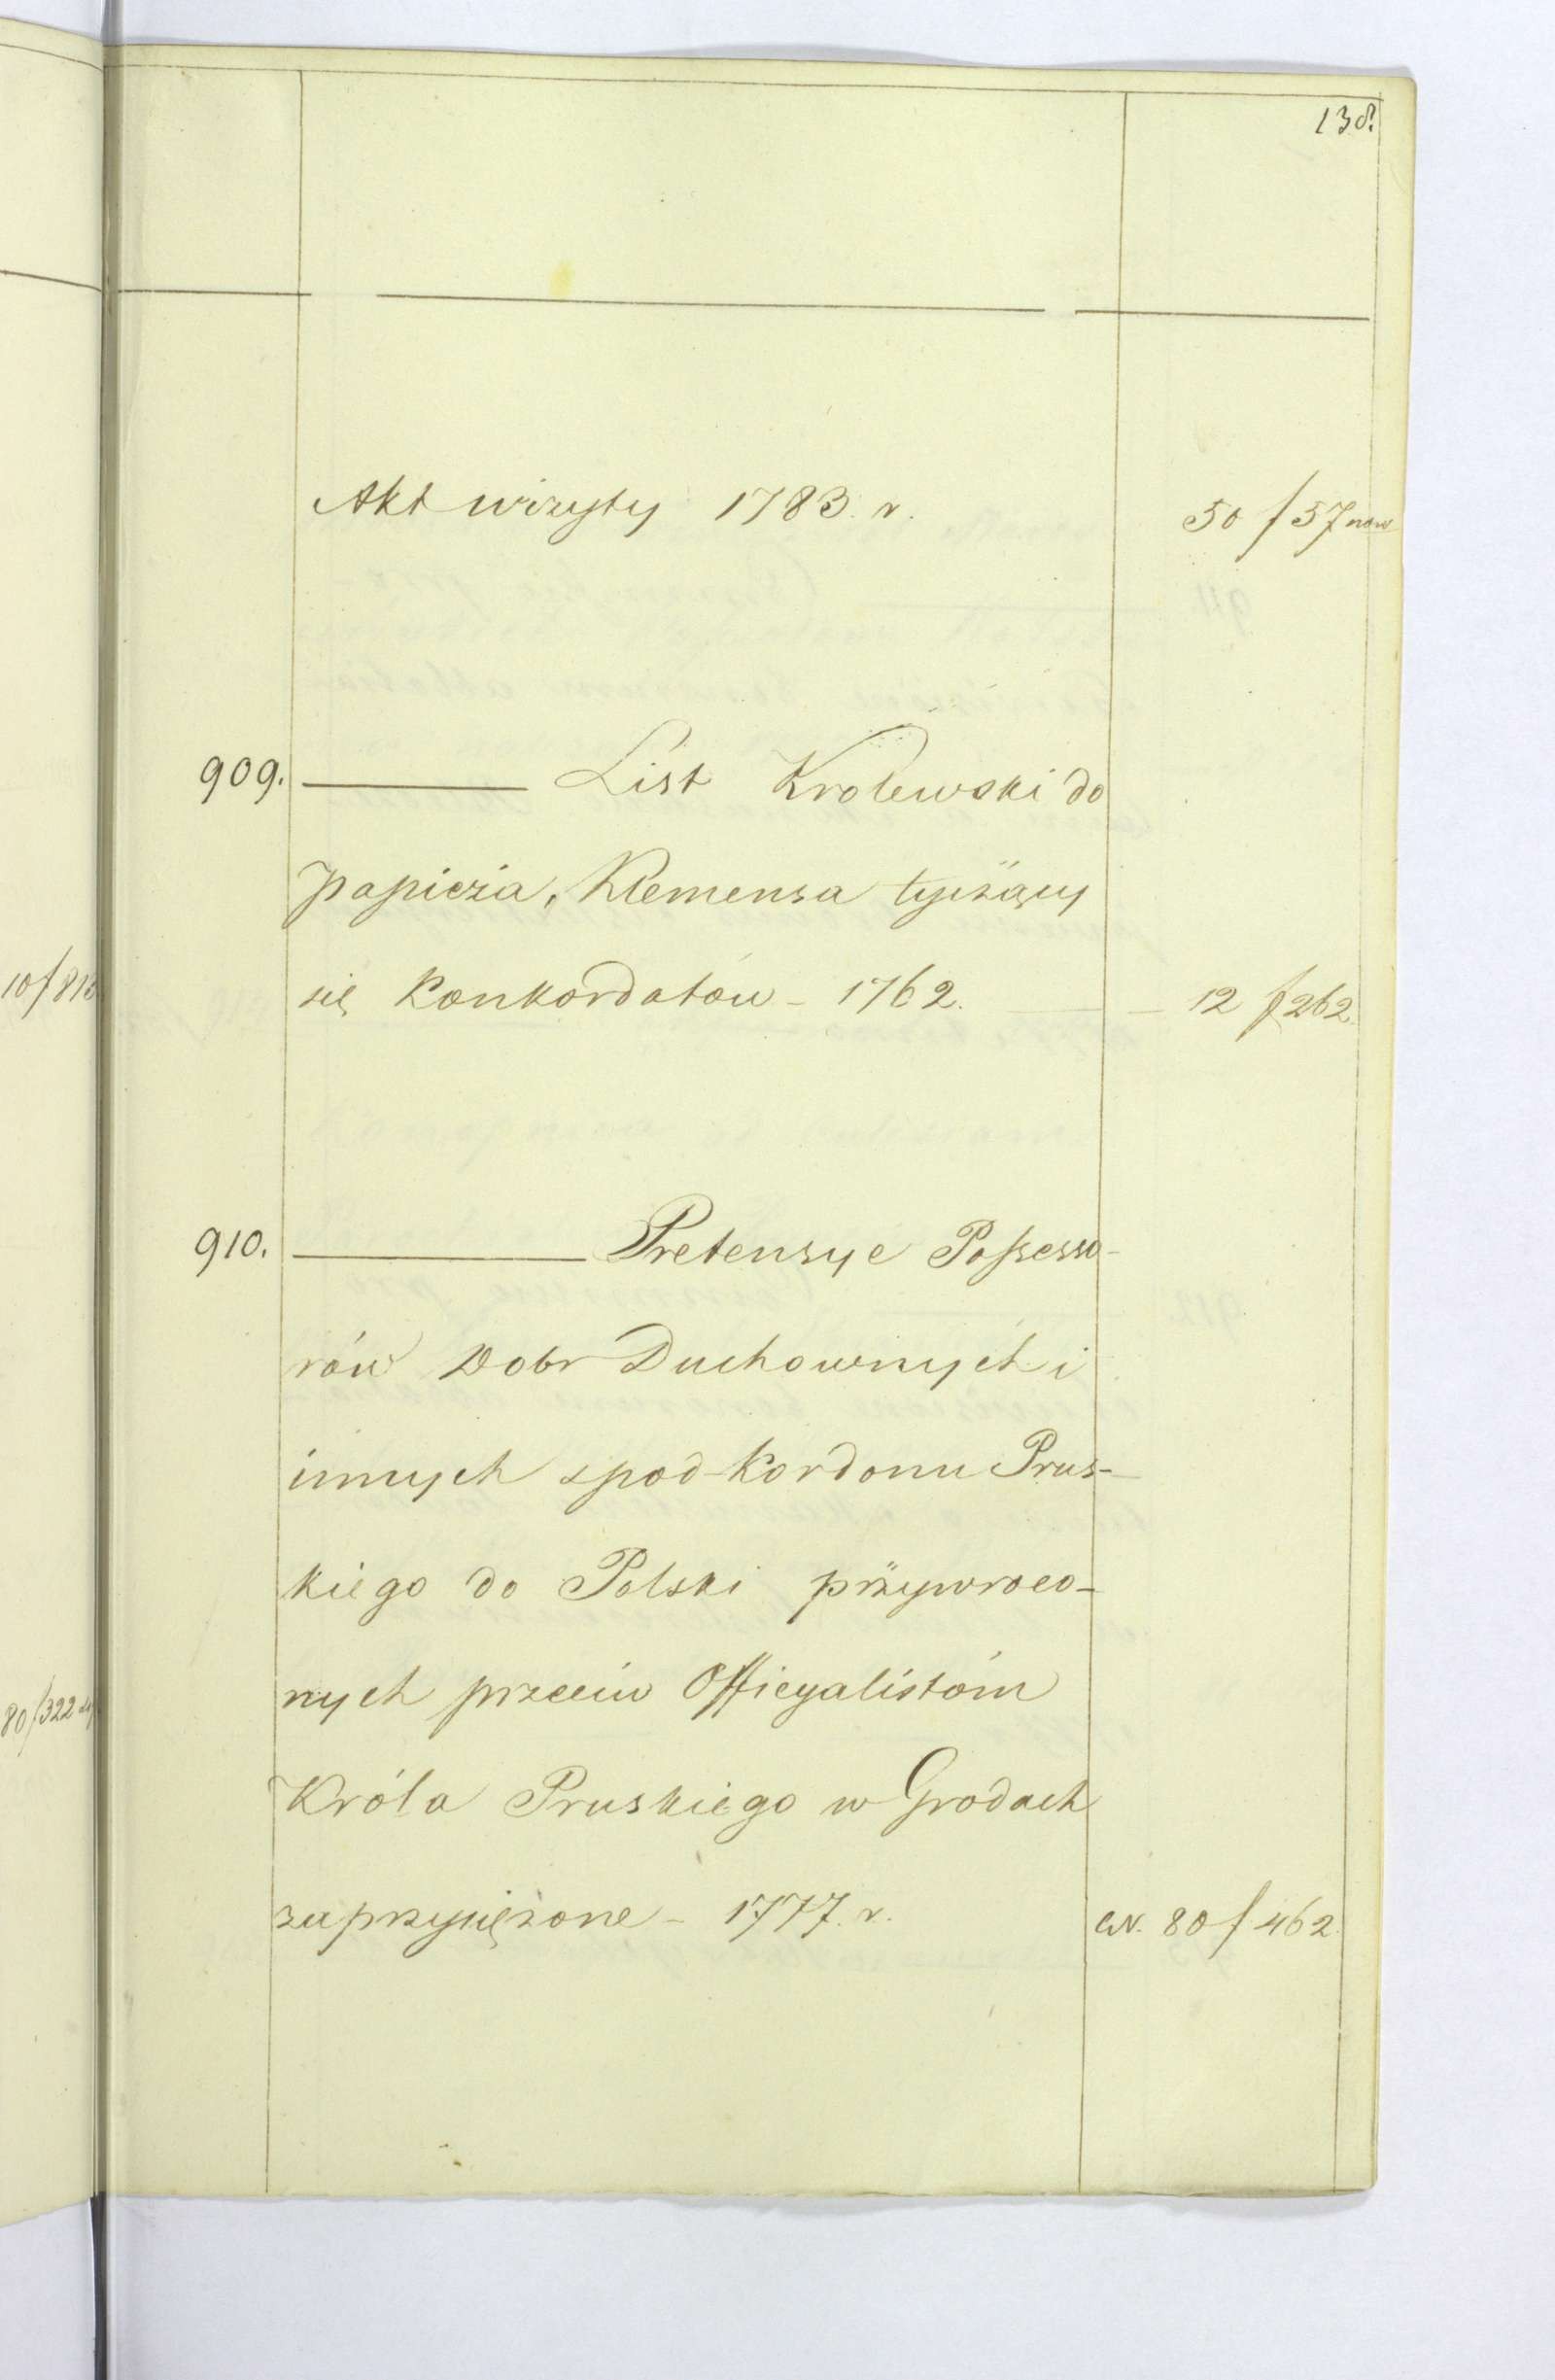 138.
Akt wizyty 1783. r. 50 f 57 now
909. List Krolewski do
papieża, Klemensa tyczący
się Konkordatów - 1762. 12 f 262.
10/813
910. Pretensye Possesso-
rów Dobr Duchownych i
innych spod Kordonu Prus-
kiego do Polski przywroco-
nych przeciw Officyalistom
80/322
Króla Pruskiego w Grodach
zaprzysiężone - 1777. r. N. 80 f 462.